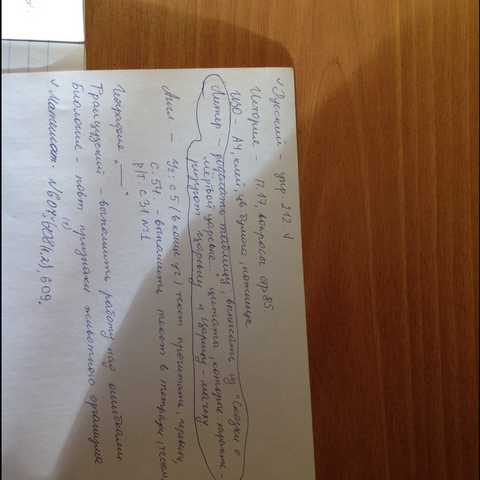 ✓ Русский – упр. 212 ✓
История – П. 17, вопросы стр 85
ИЗО – А4, клей, цв бумага, ножницы
Литер – доделать таблицу, выписать из "Сказки о
мёртвой царевне цитата, которые характе-
ризуют царевну и царицу-мачеху
Англ – Уч: с 5 (в конце уч) текст прочитать,
с. 54. – выполнить текст в тетради
Р/т с 31 №1
География "——"
Французский – выполнить работу над ошибками
Биология – повт признаки животного организма
✓ Математ. № 607, 608, 609.